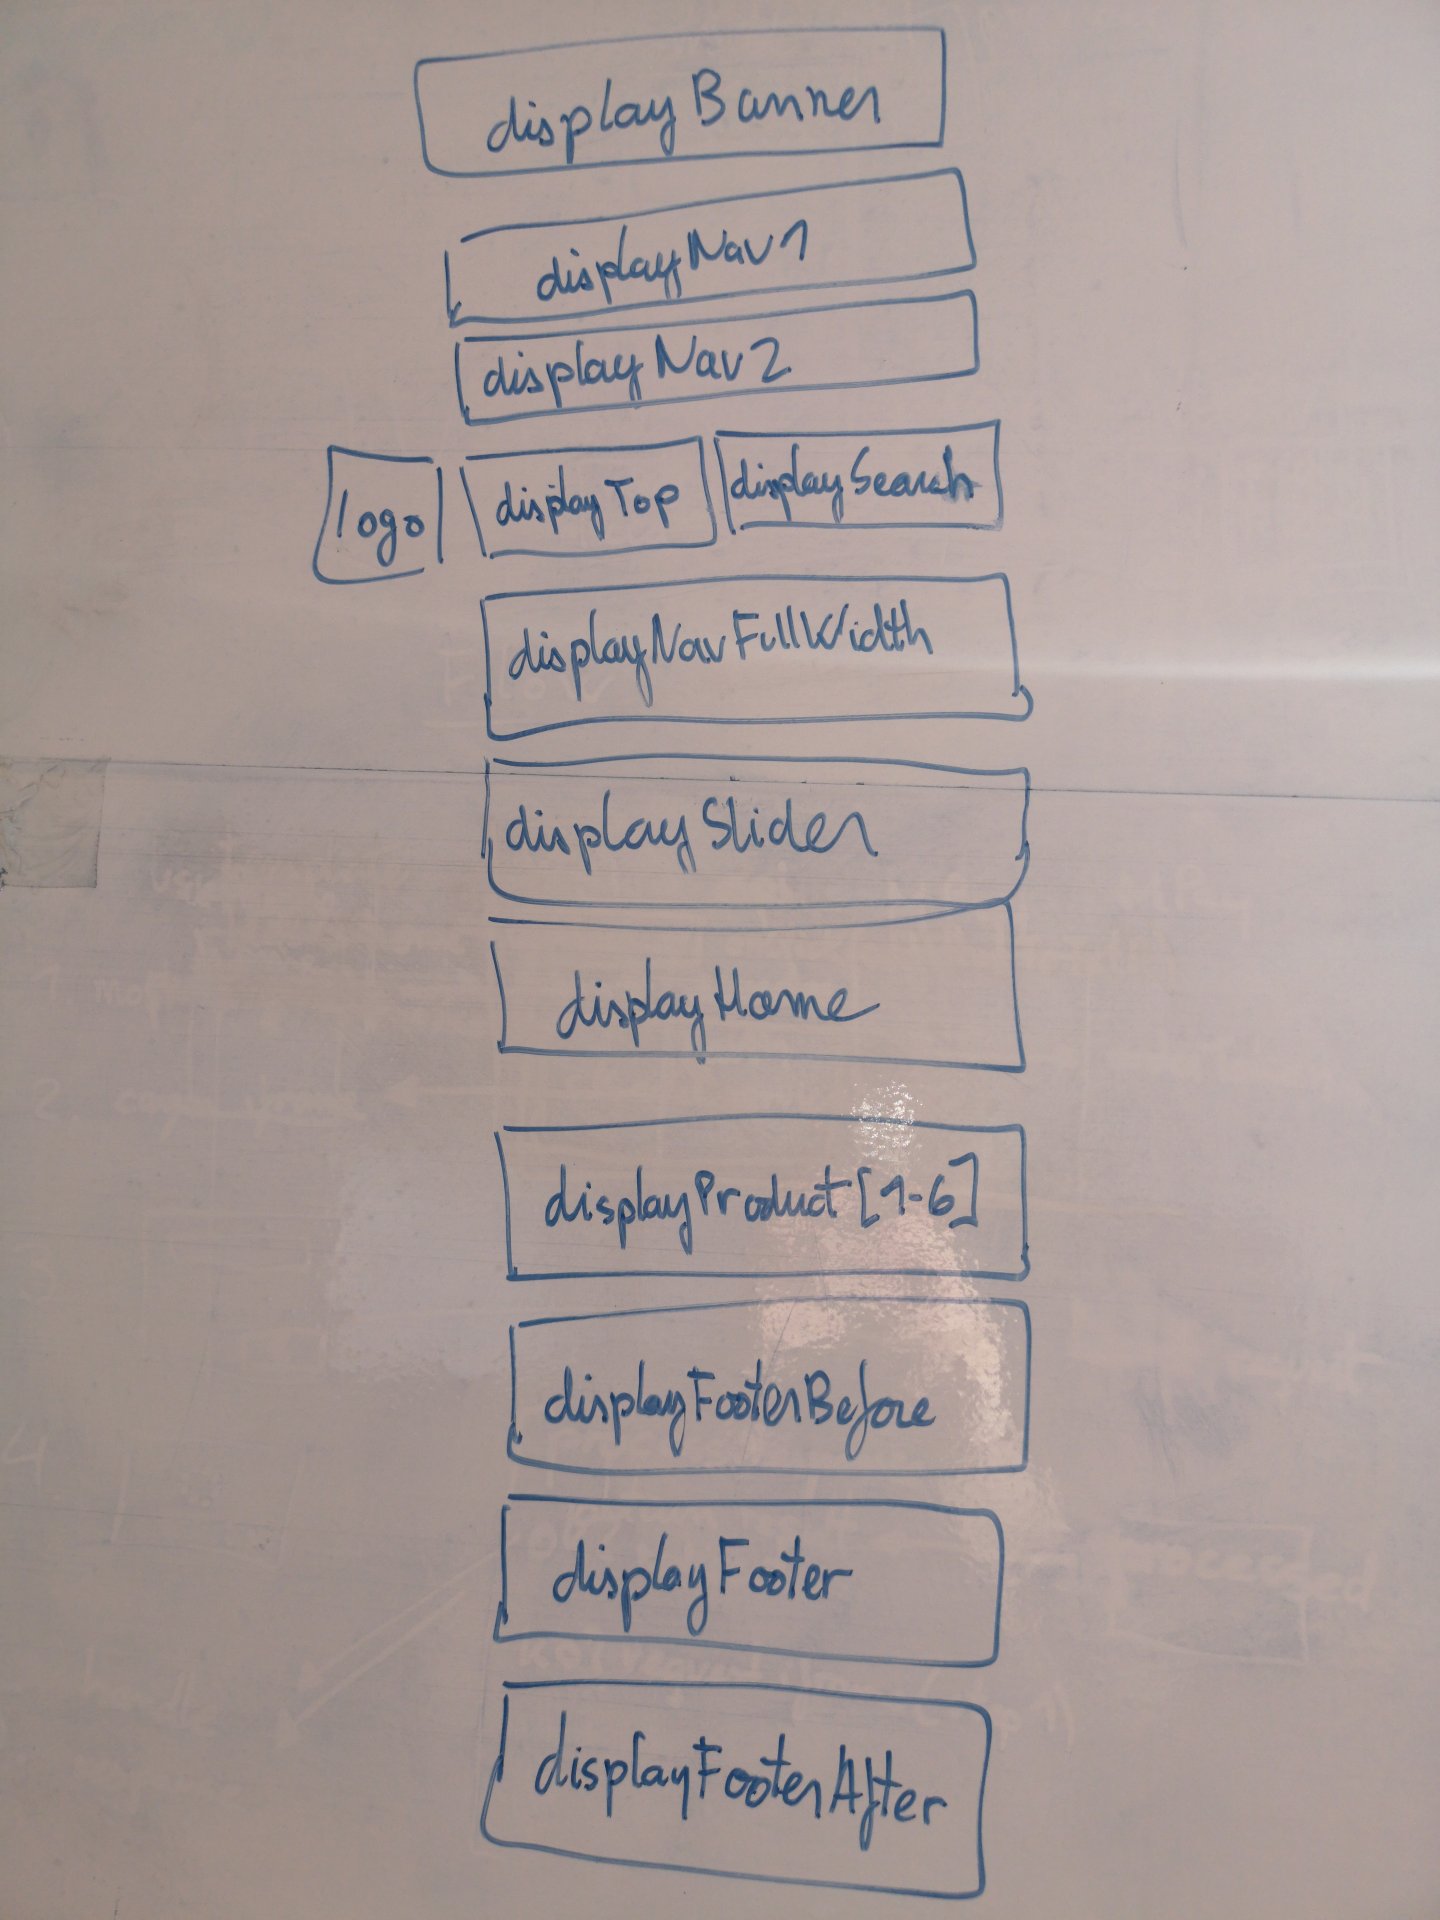 displayBanner
displayNav1
displayNav2
logo displayTop displaySearch
displayNavFullWidth
displaySlider
displayHome
displayProduct [1-6]
displayFooterBefore
displayFooter
displayFooterAfter